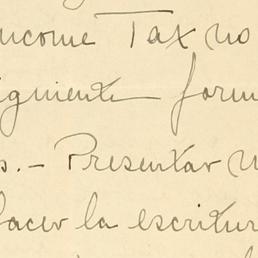 ncome Tax no
iguiente form
s. - Presentar u
facer la escritur